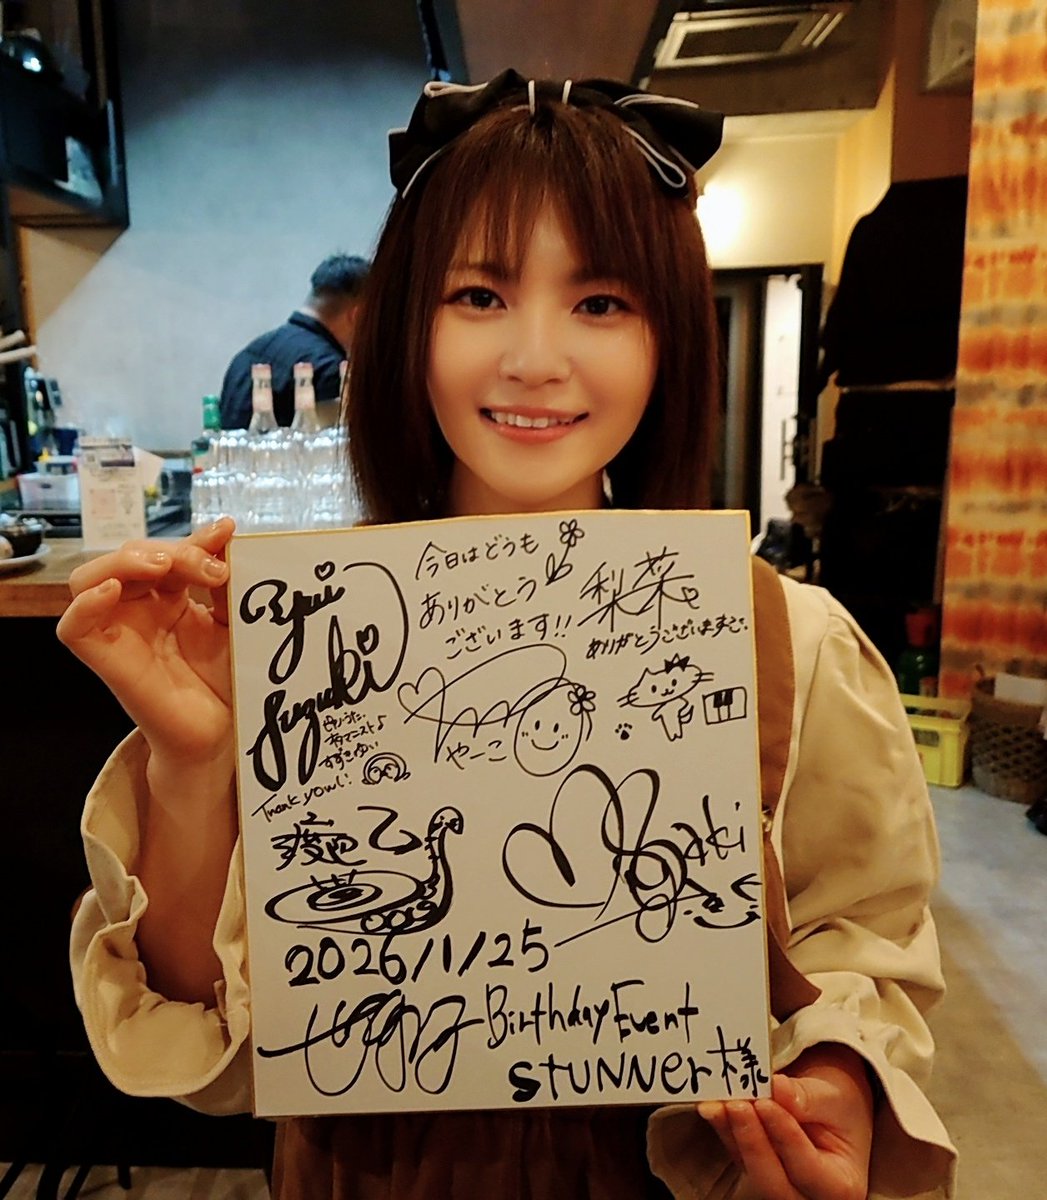 Yui
Suzuki
すずきゆい
Thank you!!
今日はどうも
ありがとう
ございます!!
やーこ
梨菜
ありがとうございますっ。
2026/1/25
Birthday Event
STUNNer様